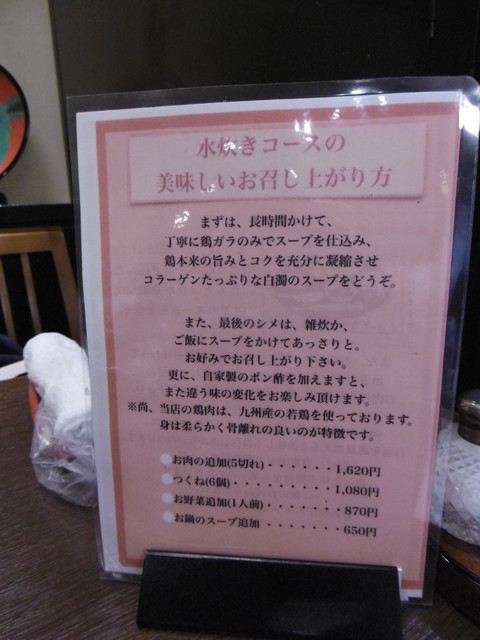 水炊きコースの
美味しいお召し上がり方
まずは、長時間かけて、
丁寧に鶏ガラのみでスープを仕込み、
鶏本来の旨みとコクを充分に凝縮させ
コラーゲンたっぷりな白濁のスープをどうぞ。
また、最後のシメは、雑炊か、
ご飯にスープをかけてあっさりと。
お好みでお召し上がり下さい。
更に、自家製のポン酢を加えますと、
また違う味の変化をお楽しみ頂けます。
※尚、当店の鶏肉は、九州産の若鶏を使っております。
身は柔らかく骨離れの良いのが特徴です。
お肉の追加(5切れ)・・・・・・1,620円
つくね(6個)・・・・・・・・・1,080円
お野菜追加(1人前)・・・・・・・870円
お鍋のスープ追加・・・・・・・650円